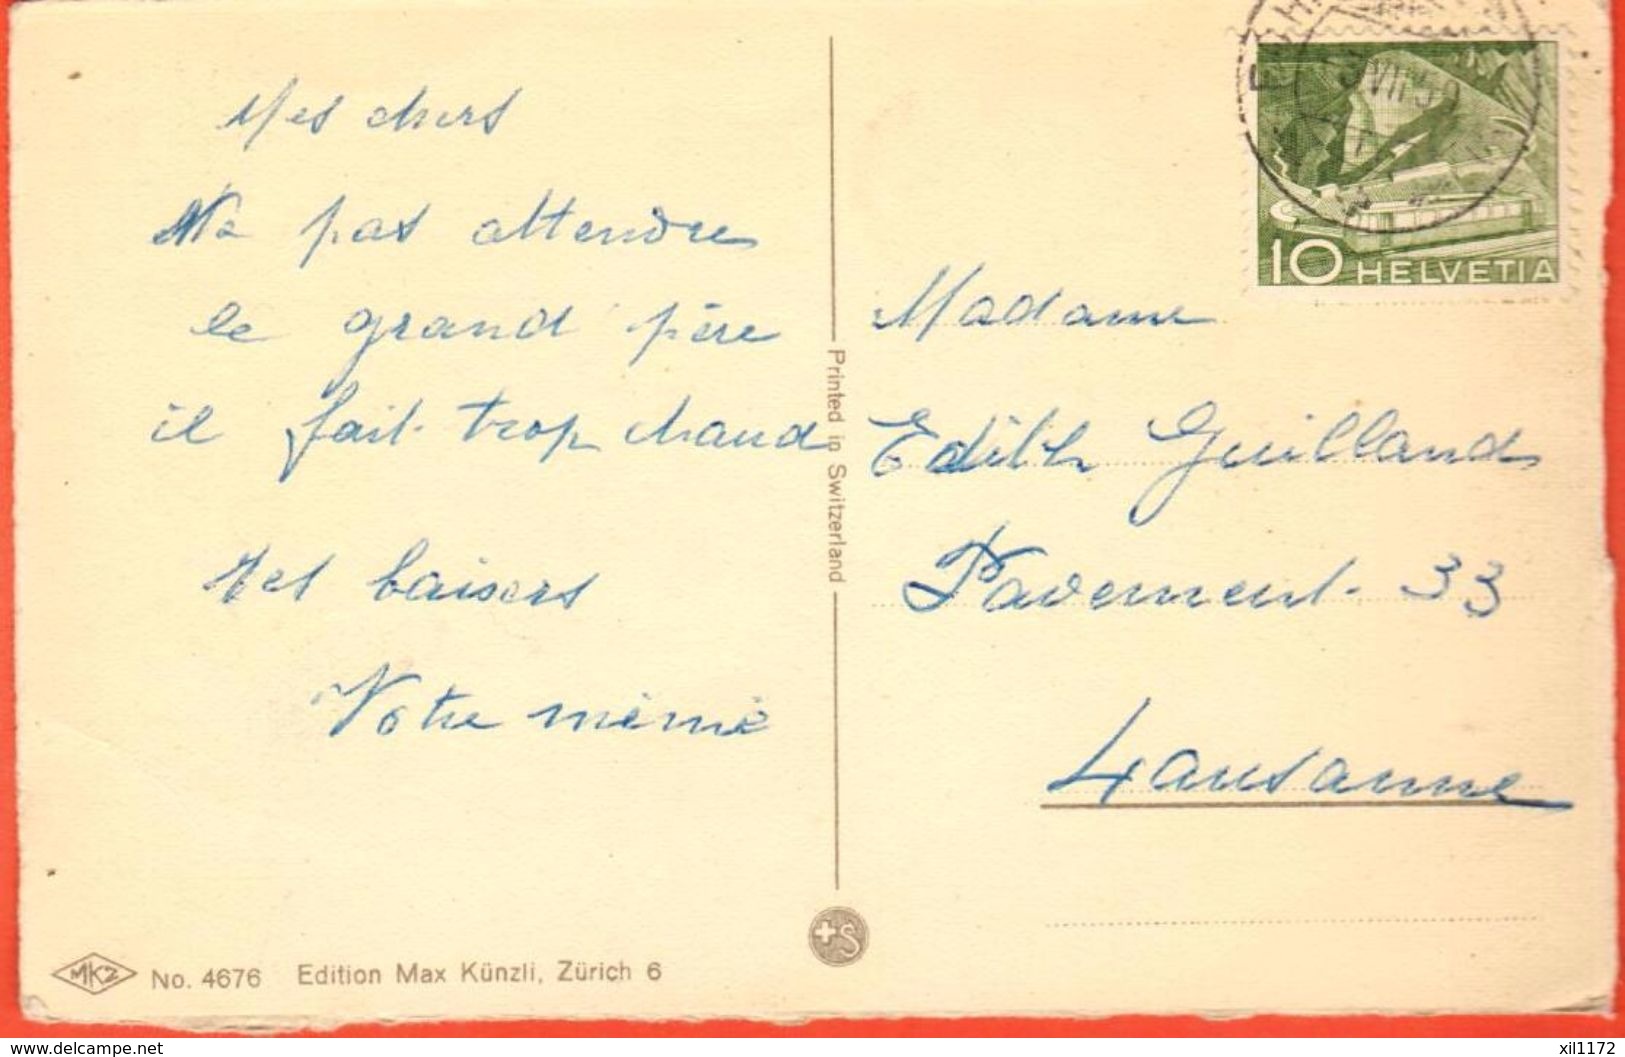 Mes chers
Ne pas attendre
le grand père
il fait trop chaud
Mes baisers
Votre mémé
Madame
Edith Guilland
Pavement 33
Lausanne
Printed in Switzerland
10 HELVETIA
VII 50
MKZ No. 4676 Edition Max Künzli, Zürich 6
www.delcampe.net
xil1172